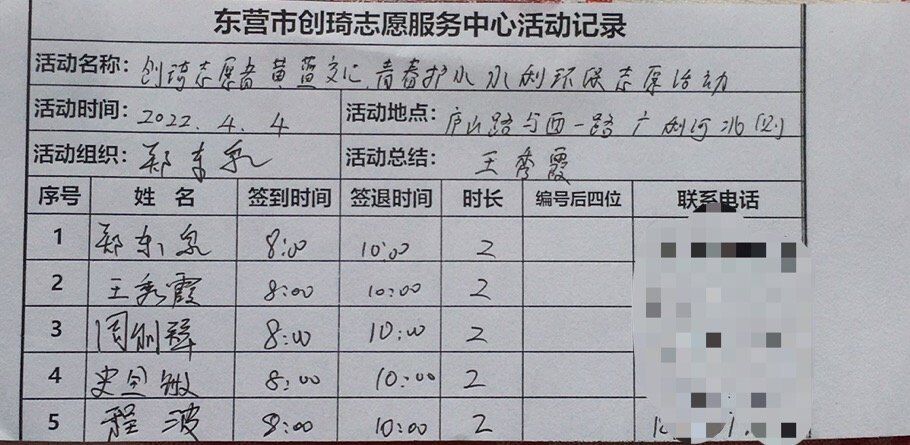 东营市创琦志愿服务中心活动记录
活动名称：创琦志愿者黄蓝交汇.青春护水水利环保志愿活动
活动时间：2022.4.4 活动地点：庐山路与西一路广利河北
活动组织：郑东泉 活动总结：王秀霞
序号 姓名 签到时间 签退时间 时长 编号后四位 联系电话
1 郑东泉 8:00 10:00 2
2 王秀霞 8:00 10:00 2
3 周 8:00 10:00 2
4 史 敏 8:00 10:00 2
5 程波 8:00 10:00 2